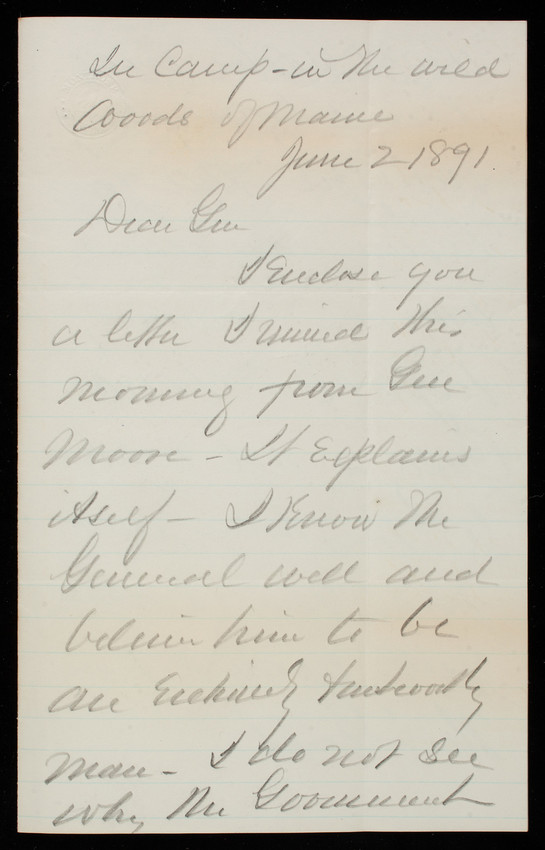 In Camp - in the wild
Woods of Maine
June 2 1891.
Dear Gen
I Enclose you
a letter I received this
morning from Gen
Moore - It Explains
itself - I Know the
General well and
believe him to be
an Entirely trustworthy
man - I do not see
why the Government